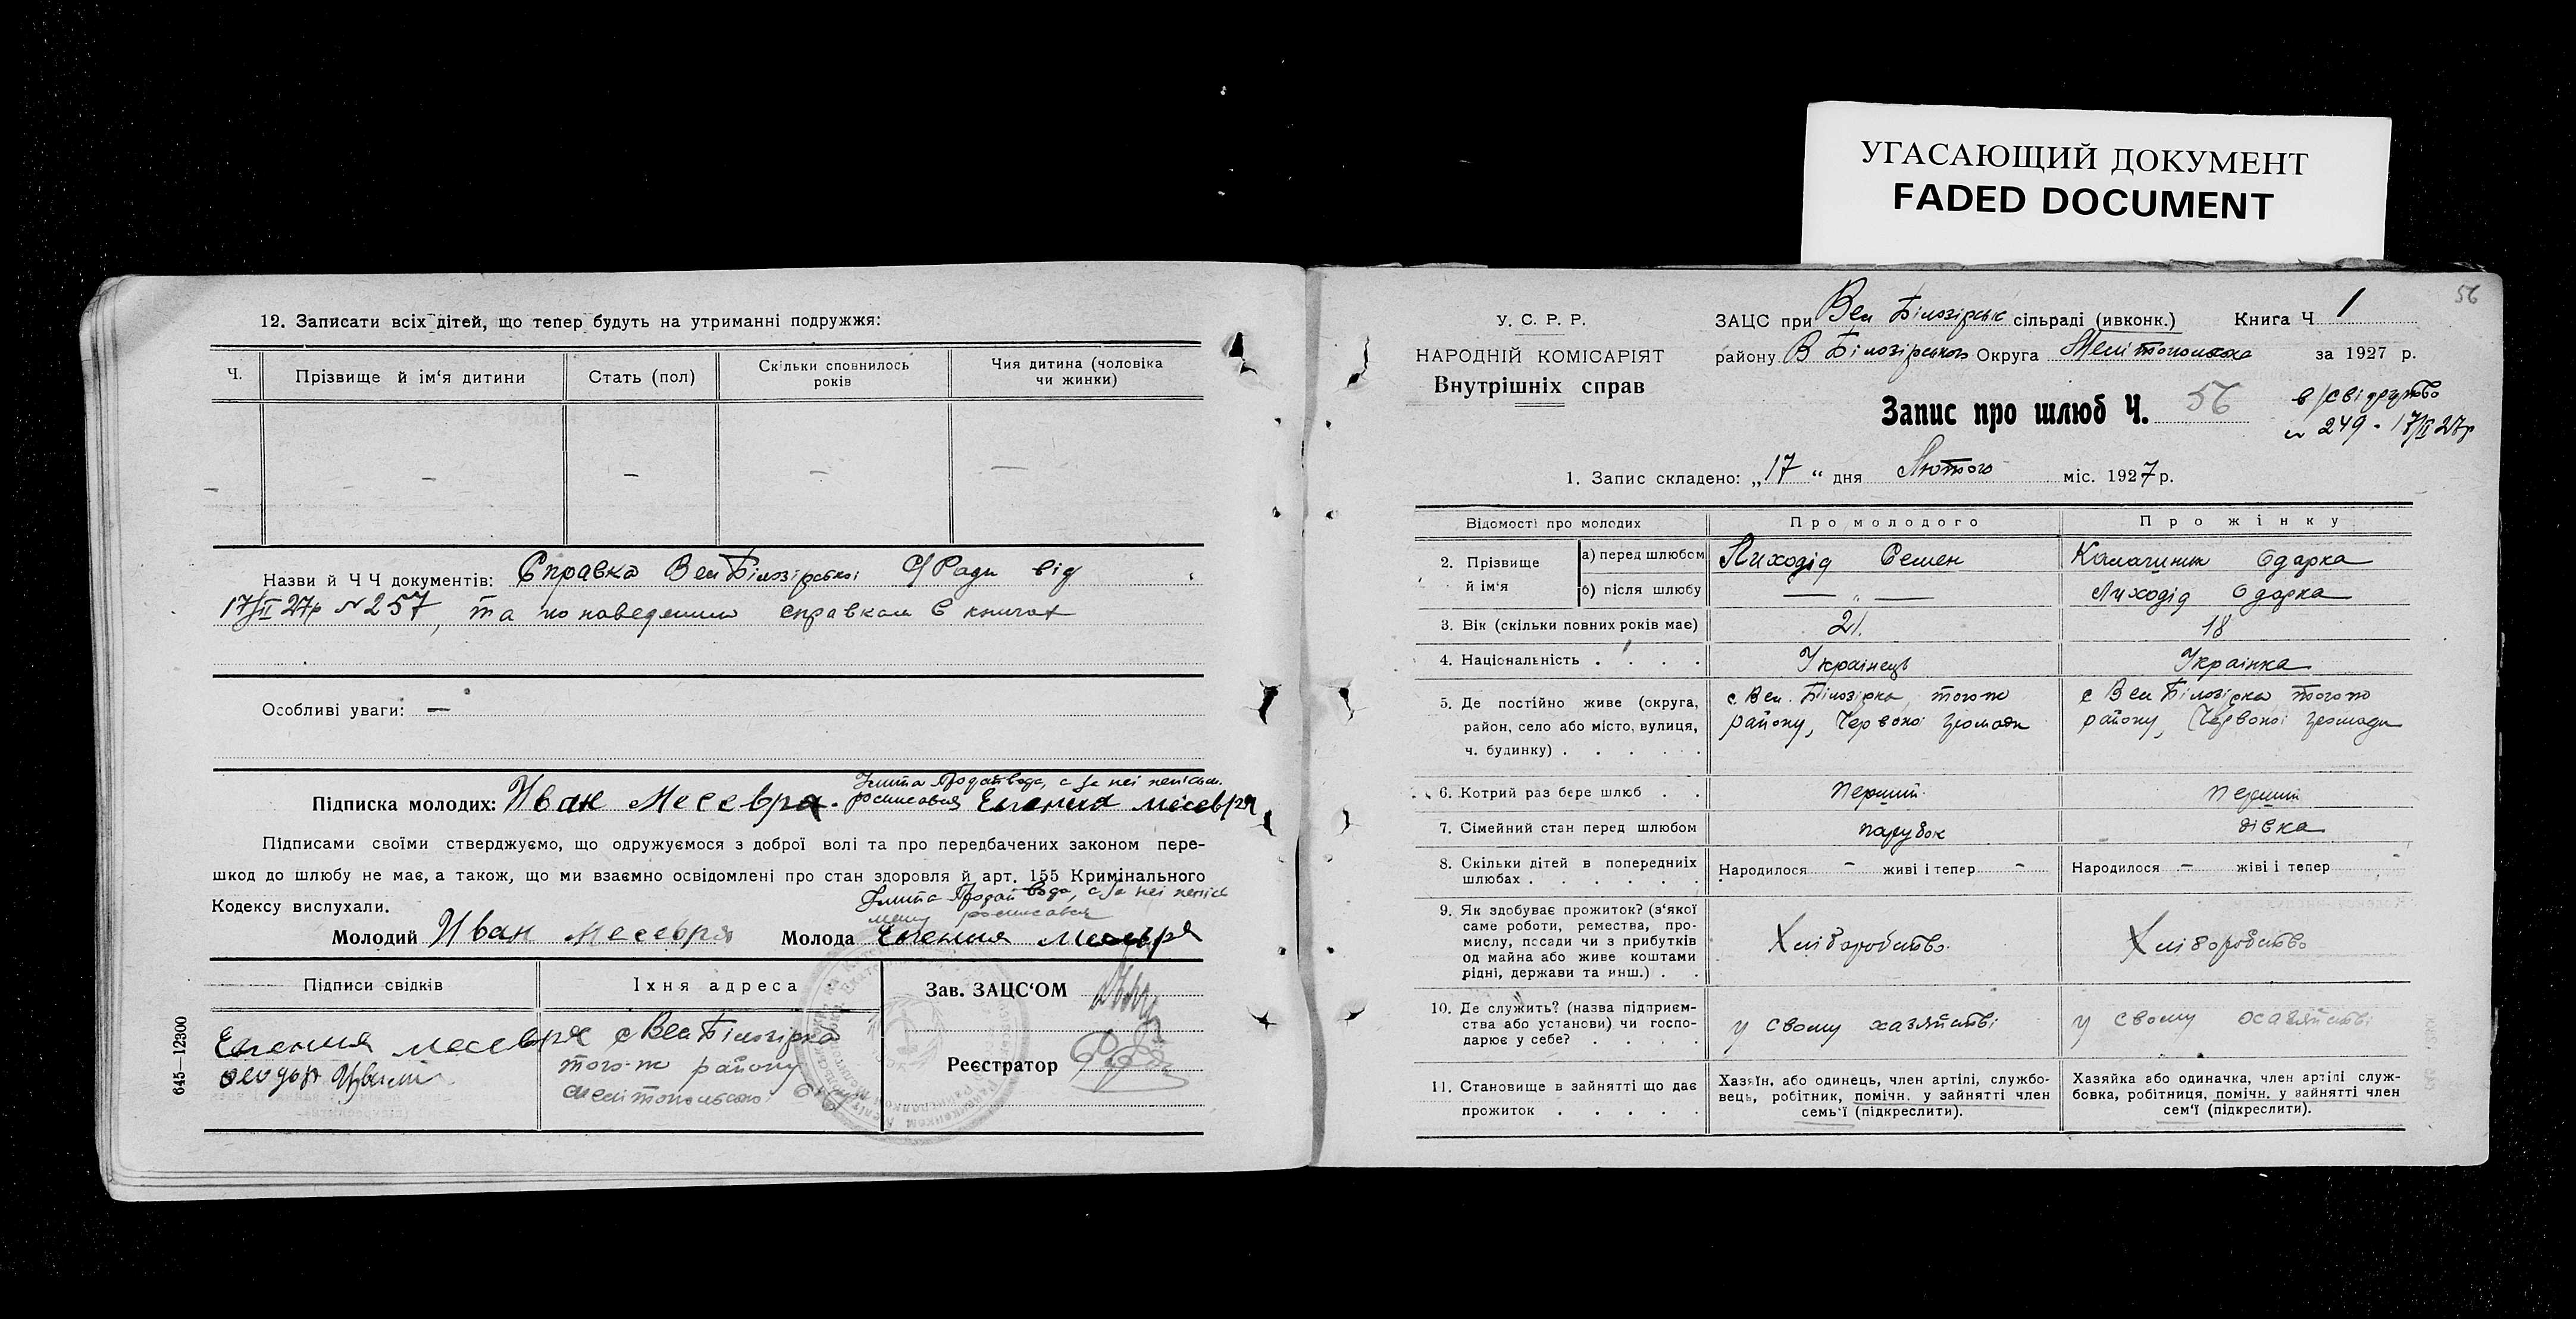 УГАСАЮЩИЙ ДОКУМЕНТ
FADED DOCUMENT
12. Записати всіх дітей, що тепер будуть на утриманні подружжя:
Ч.
Прізвище й ім‘я дитини
Стать (пол)
Скільки сповнилось років
Чия дитина (чоловіка чи жинки)
Назви й Ч Ч документів: Справка Вел Білозірської С/Ради від
17/II 27р № 257, та по наведеним справкам в книгах
Особливі уваги: —
Улита Продайвода, а за неї неписьм.
Підписка молодих: Иван Месевря. росписався Евгения месевря
Підписами своїми стверджуємо, що одружуємося з доброї волі та про передбачених законом пере-
шкод до шлюбу не має, а також, що ми взаємно освідомлені про стан здоровля й арт. 155 Кримінального
Кодексу вислухали.
Улита Продайвода, а за неї неписьменну росписався
Молодий Иван Месевря Молода Евгения месевря
Підписи свідків
Їхня адреса
Зав. ЗАЦС‘ОМ
Евгения месевря с Вел Білозірка
того-ж району
Мелітопольської
Реєстратор
645—12300
56
У. С. Р. Р.
НАРОДНІЙ КОМІСАРІЯТ
Внутрішніх справ
ЗАЦС при Вел Білозірськ сільраді (ивконк.) Книга Ч 1
району В Білозірського Округа Мелітопольська за 1927 р.
Запис про шлюб Ч. 56
в/свідоцтво
№ 249 - 17/II 27р
1. Запис складено: „17“ дня Лютого міс. 1927 р.
Відомості про молодих
Про молодого
Про жінку
2. Прізвище й ім‘я
а) перед шлюбом Лиходід Семен Одарка
б) після шлюбу — „ — Лиходід Одарка
3. Вік (скільки повних років має) 21. 18
4. Національність . . . . Українець Українка
5. Де постійно живе (округа, район, село або місто, вулиця, ч. будинку) . . . . .
с Вел. Білозірка, того ж
району, Червоної громади
с Вел Білозірка того ж
району, Червоної громади
6. Котрий раз бере шлюб . . Перший Перший
7. Сімейний стан перед шлюбом парубок дівка
8. Скільки дітей в попередниіх шлюбах . . . . . . .
Народилося — живі і тепер —
Народилося — жіві і тепер
9. Як здобуває прожиток? (з‘якої
саме роботи, ремества, про-
мислу, посади чи з прибутків
од майна або живе коштами
рідні, держави та инш.) . .
Хліборобство. Хліборобство
10. Де служить? (назва підприєм-
ства або установи) чи госпо-
дарює у себе? . . . .
у свому хазяйстві
у свому хазяйстві
11. Становище в зайнятті що дає
прожиток . . . . .
Хазяїн, або одинець, член артілі, службо-
вець, робітник, помічн. у зайнятті член
семь‘ї (підкреслити).
Хазяйка або одиначка, член артілі служ-
бовка, робітниця, помічн. у зайнятті член
сем‘ї (підкреслити).